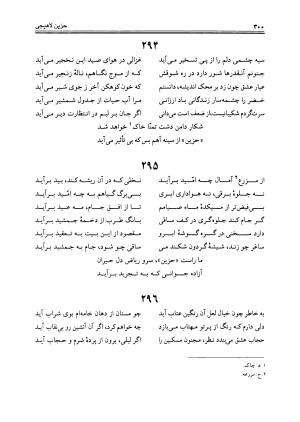 ۳۰۰
حزین لاهیجی
۲۹۴
سیه چشمی دلم را از پی تسخیر می‌آید
غزالی در هوای صید این نخجیر می‌آید
جنونم آنقدرها شور دارد در ره شوقش
که از موج نگاهم، نالهٔ زنجیر می‌آید
عیار عشق چون زد بر محک اندیشه، دانستم
که خون کوهکن آخر ز جوی شیر می‌آید
خضر را چشمه‌سار زندگانی باد ارزانی
مرا آب حیات از جدول شمشیر می‌آید
سرت‌گردم شکیبائیست، از ضعف است می‌دانی
اگر جان بر لبم در انتظارت دیر می‌آید
شکار دامن دشت تمنّا خاک ۱ خواهد شد
«حزین» از سینه آهم بس که بی تأثیر می‌آید
۲۹۵
از مزرع ۲ آمال چه امّید برآید
نخلی که در آن ریشه کند، بید برآید
نه جلوهٔ برقی، نه هواداری ابری
بی‌برگ گیاهم به چه امّید برآید
بی‌فیض‌تر از میکدهٔ ماه صیامم
تا از افق جام، مه عید برآید
گر جام کند جلوه‌گری در کف ساقی
بانگ طرب از دخمهٔ جمشید برآید
دارد سخنی در گره گوشهٔ ابرو
مقصود از این بیت به تعقید برآید
ساغر چو زند، شیشهٔ گردون شکند می
ساقی چو شود، جام به جمشید برآید
ما راست «حزین»، سرو ریاض دل حیران
آزاده جوانی که به تجرید برآید
۲۹۶
به خاطر چون خیال لعل آن رنگین عتاب آید
چو مستان از دهان خامه‌ام بوی شراب آید
دلی دارم که رنگ از پرتو مهتاب می‌بازد
چه خواهم کرد، اگر آن آتشین رو بی‌نقاب آید
حجاب عشق می‌بندد نظر، مجنون مسکین را
اگر لیلی، برون از پردهٔ شرم و حجاب آید
۱. چاک.
۲. ج: مزرعه.